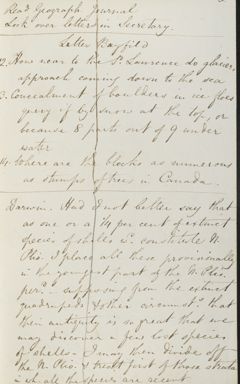 Read Geograph Journal
Look over Letters in Secretary
Letter Bayfield
12. How near to the St Lawrence do glaciers
approach coming down to the sea
13. Concealment of boulders in ice floes
query if by snow at the top, or
because 8 parts out of 9 under
water
14. Where are the blocks as numerous
as stumps of trees in Canada.
Darwin. Had I not better say that
as one or a 1/4 per cent of extinct
species of shells wd. constitute N.
Plio. I place all these provisionally
in the youngest part of the N. Plio.
period supposing from the extinct
quadrupeds & other circumsts. that
their antiquity is so great that we
may discover a few lost species
of shells. I may then divide off
the N. Plio. & treat first of those strata
in wh. all the species are recent